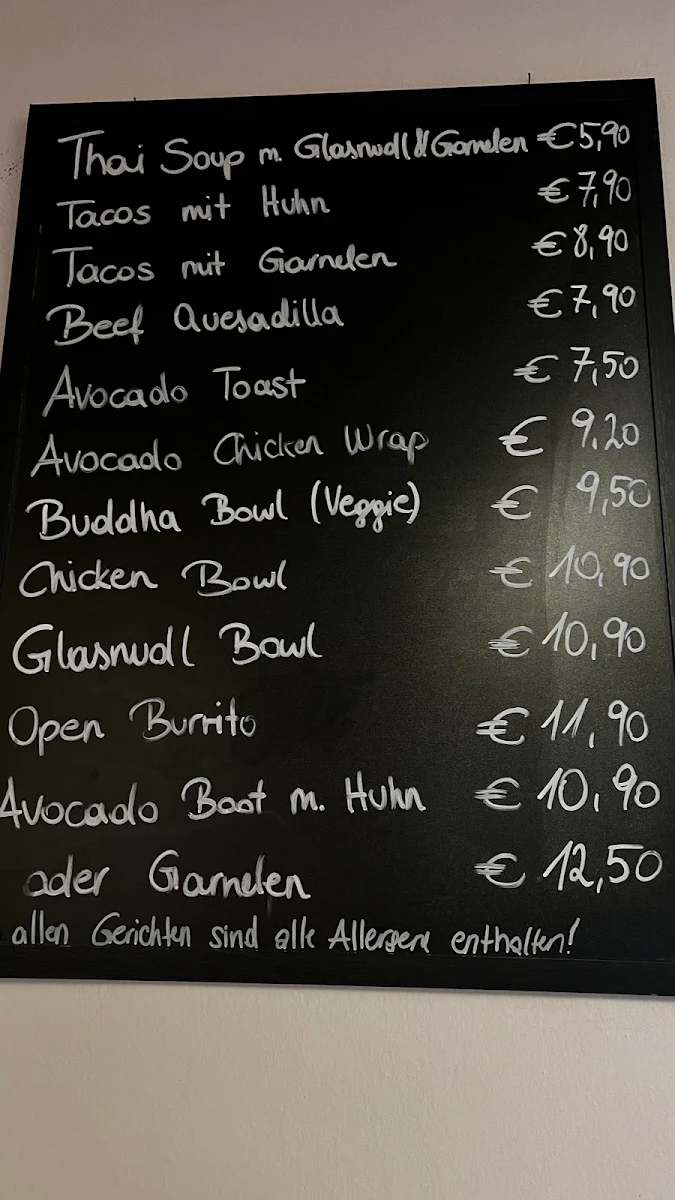 Thai Soup m. Glasnudl & Garnelen €5,90
Tacos mit Huhn €7,90
Tacos mit Garnelen €8,90
Beef Quesadilla €7,90
Avocado Toast €7,50
Avocado Chicken Wrap € 9.20
Buddha Bowl (Veggie) € 9,50
Chicken Bowl € 10,90
Glasnudl Bowl € 10,90
Open Burrito € 11,90
Avocado Boot m. Huhn € 10,90
oder Garnelen € 12,50
allen Gerichten sind alle Allergene enthalten!